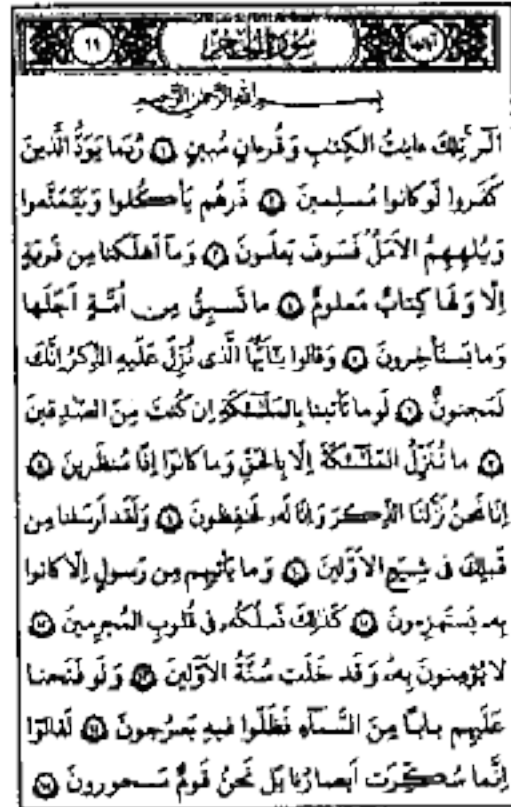 آیاتها سورة الحجر ٩٩
بسم الله الرحمن الرحيم
الٓر ۚ تِلكَ ءايٰتُ الكِتٰبِ وَ قُرءانٍ مُبينٍ ﴿١﴾ رُبَما يَوَدُّ الَّذينَ
كَفَروا لَو كانوا مُسلِمينَ ﴿٢﴾ ذَرهُم يَأكُلوا وَ يَتَمَتَّعوا
وَ يُلهِهِمُ الاَمَلُ ۖ فَسَوفَ يَعلَمونَ ﴿٣﴾ وَ ما اَهلَكنا مِن قَريَةٍ
اِلّا وَ لَها كِتابٌ مَعلومٌ ﴿٤﴾ ما تَسبِقُ مِن اُمَّةٍ اَجَلَها
وَ ما يَستَأخِرونَ ﴿٥﴾ وَ قالوا يٰاَيُّهَا الَّذى نُزِّلَ عَلَيهِ الذِّكرُ اِنَّكَ
لَمَجنونٌ ﴿٦﴾ لَو ما تَأتينا بِالمَلٰئِكَةِ اِن كُنتَ مِنَ الصّٰدِقينَ
﴿٧﴾ ما نُنَزِّلُ المَلٰئِكَةَ اِلّا بِالحَقِّ وَ ما كانوا اِذًا مُنظَرينَ ﴿٨﴾
اِنّا نَحنُ نَزَّلنَا الذِّكرَ وَ اِنّا لَهُ لَحٰفِظونَ ﴿٩﴾ وَ لَقَد اَرسَلنا مِن
قَبلِكَ فى شِيَعِ الاَوَّلينَ ﴿١٠﴾ وَ ما يَأتيهِم مِن رَسولٍ اِلّا كانوا
بِهِ يَستَهزِءونَ ﴿١١﴾ كَذٰلِكَ نَسلُكُهُ فى قُلوبِ المُجرِمينَ ﴿١٢﴾
لا يُؤمِنونَ بِهِ ۖ وَ قَد خَلَت سُنَّةُ الاَوَّلينَ ﴿١٣﴾ وَ لَو فَتَحنا
عَلَيهِم بابًا مِنَ السَّماءِ فَظَلّوا فيهِ يَعرُجونَ ﴿١٤﴾ لَقالوا
اِنَّما سُكِّرَت اَبصارُنا بَل نَحنُ قَومٌ مَسحورونَ ﴿١٥﴾